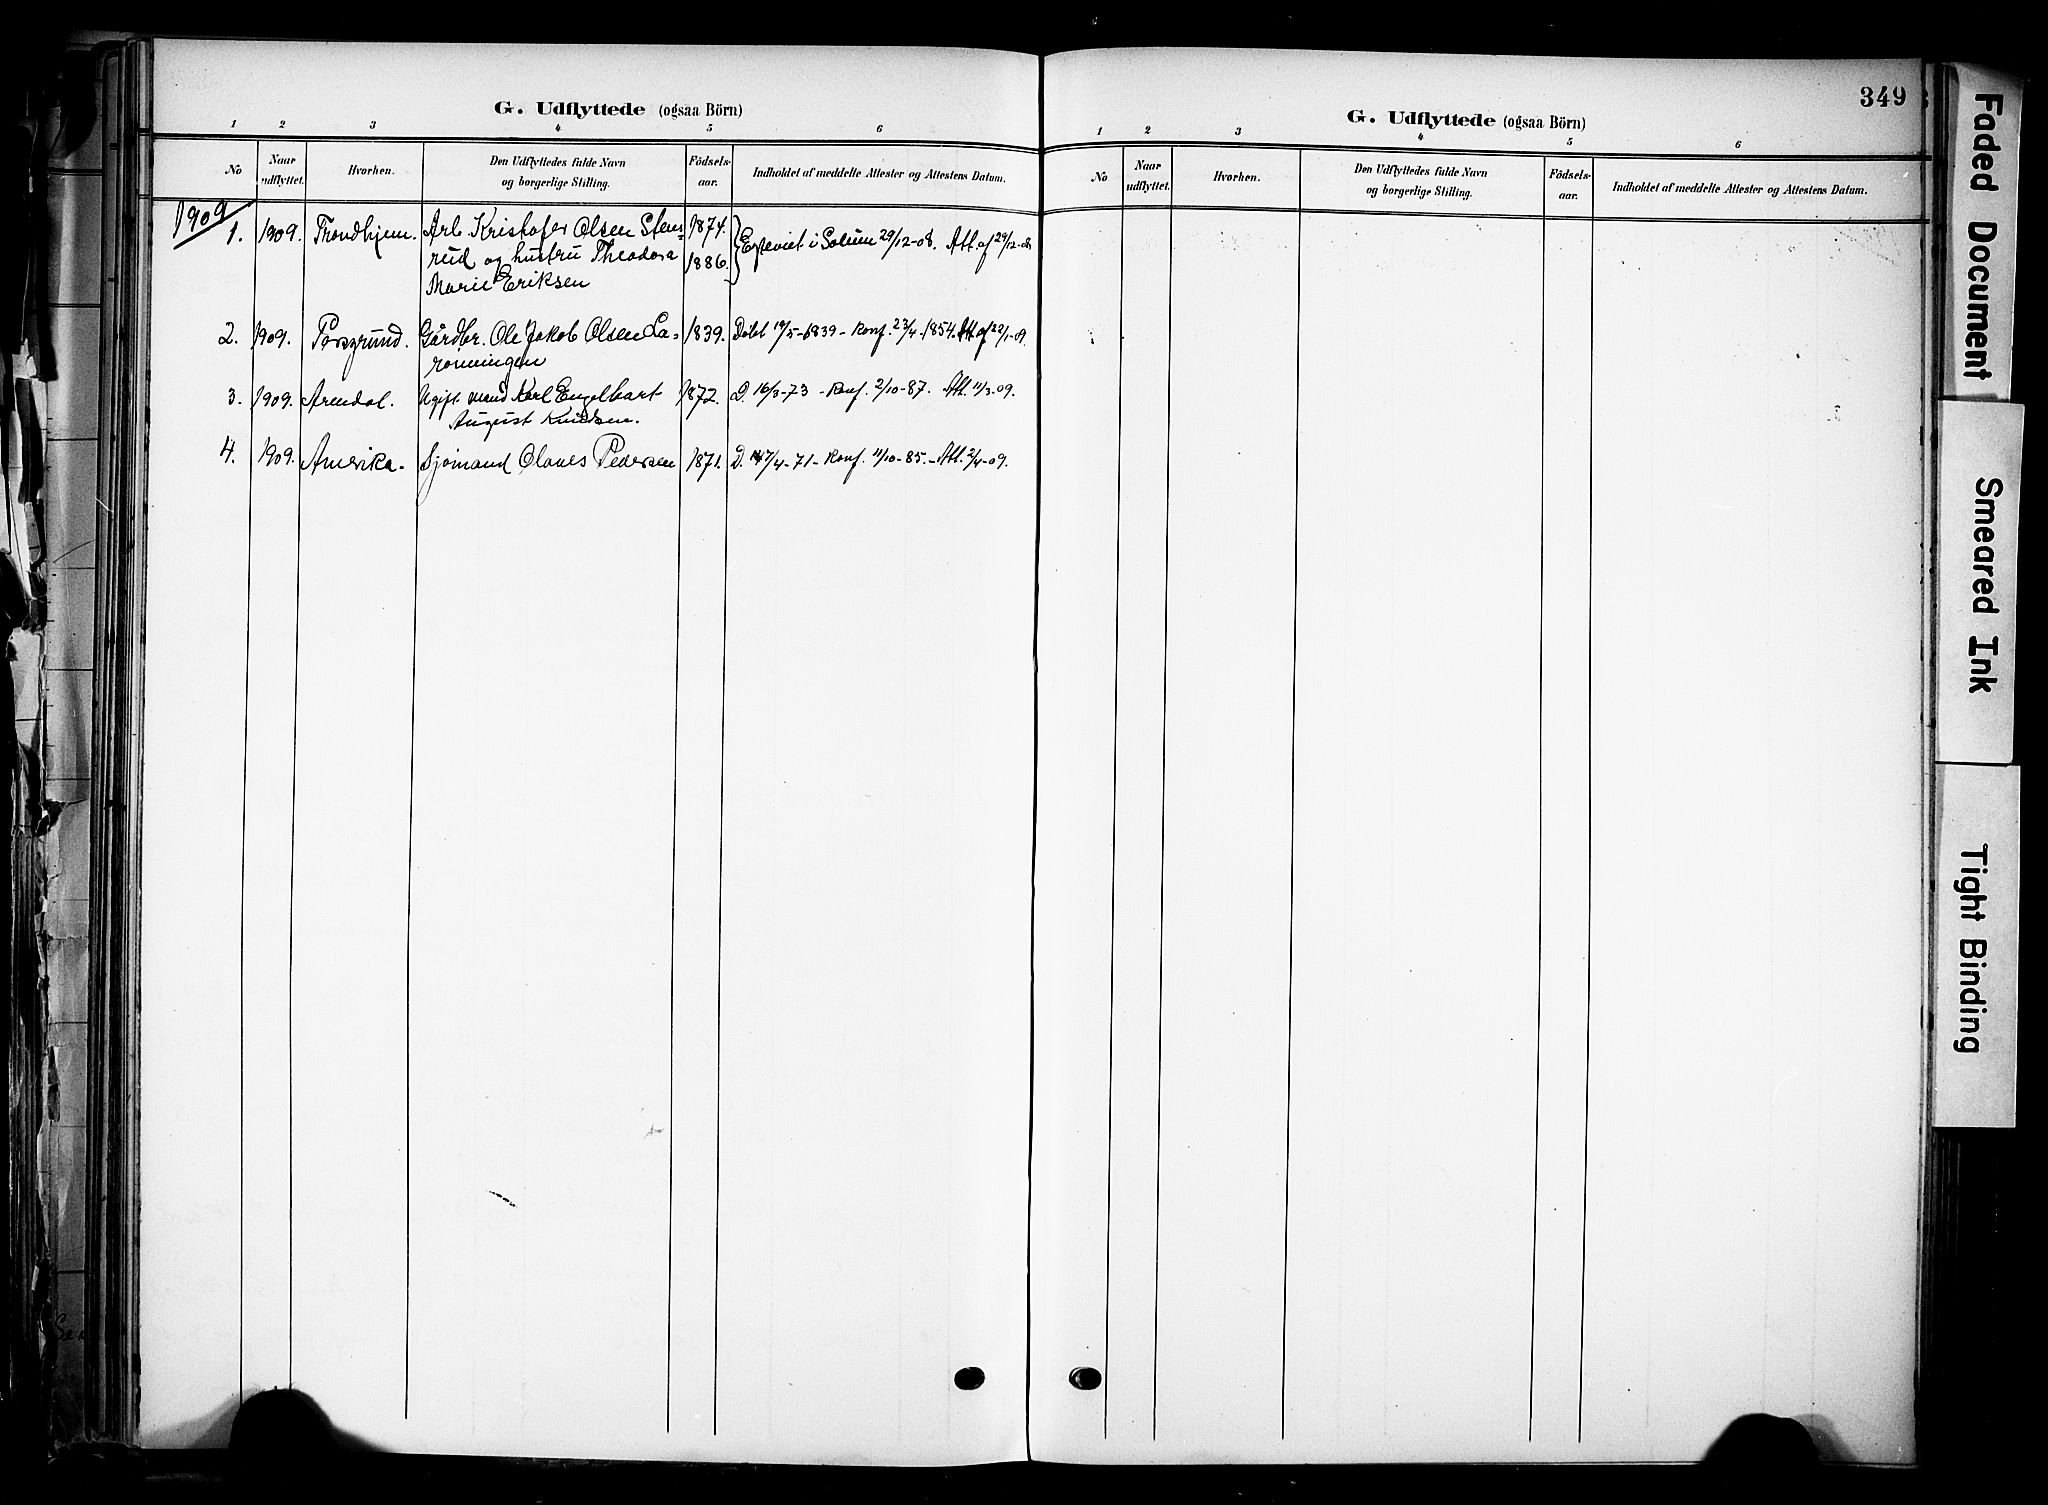 G. Udflyttede (ogsaa Börn)
1 2 3 4 5 6
No Naar udflyttet. Hvorhen. Den Udflyttedes fulde Navn og borgerlige Stilling. Födsels-aar. Indholdet af meddelte Attester og Attestens Datum.
1909
1. 1909. Trondhjem. Arb. Kristofer Olsen Stens- 1874. Egteviet i Solum 29/12-08. Att. af 29/12-08
rud og hustru Theodora 1886.
Marie Eriksen
2. 1909. Porsgrund. Gårdbr. Ole Jakob Olsen La- 1839. Döbt 19/5-1839 - Konf. 23/4-1854. Att. af 22/1-09.
rönningen
3. 1909. Arendal. Ugift mand Karl Engelhart 1872. D. 16/3-73 - Konf. 2/10-87. Att. 11/3-09.
August Knudsen.
4. 1909. Amerika. Sjömand Olaves Pedersen 1871. D. /4-71 - Konf. 11/10-85. - Att. 2/4-09.
349
G. Udflyttede (ogsaa Börn)
1 2 3 4 5 6
No Naar udflyttet. Hvorhen. Den Udflyttedes fulde Navn og borgerlige Stilling. Födsels-aar. Indholdet af meddelte Attester og Attestens Datum.
Faded Document
Smeared Ink
Tight Binding